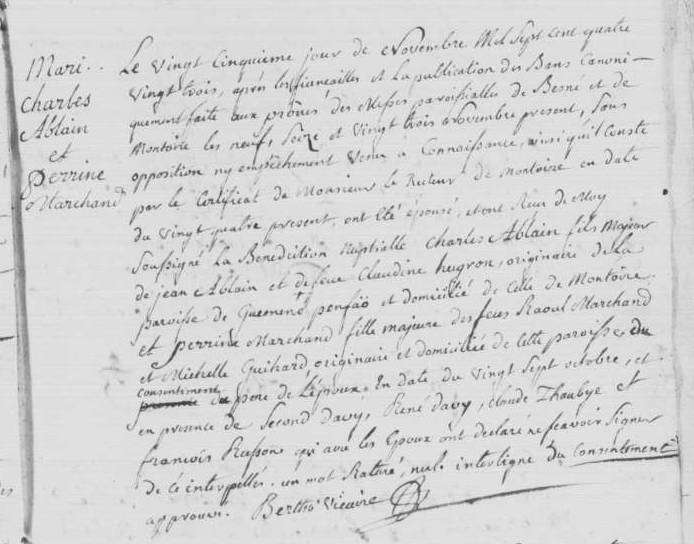 Mari..
Charles
Ablain
et
Perrine
Marchand
Le vingt cinquieme jour de Novembre Mil Sept cent quatre
vingt trois, aprés les fiancailles et la publication des Bans Canoni-
quement faite aux prônes des Messes paroissialles de Besné et de
Montoire les neuf, Seize et vingt trois Novembre present, sous
opposition ny empêchement venu a Connaissance, ainsi qu'il Conste
par le Certificat de Monsieur le Recteur de Montoire en date
du vingt quatre present, ont été épousé, et ont Reçu de Moy
Soussigné la Benediction Nuptialle Charles Ablain fils Majeur
de jean Ablain et de feue Claudine hugron, originaire de la
paroisse de Guemené penfao et domicilié de Celle de Montoire
et perrine Marchand fille majeure des feus Raoul Marchand
et Michelle Guihard originaire et domiciliée de Cette paroisse du
consentement
du pere de l'époux. En date du vingt Sept octobre, et
en presence de Second Davy, René Davy, Claude Thaubye et
francois Rasson qui avec les Epoux ont declaré ne sçavoir Signer
de Ce interpellés. un mot Raturé, nul. interligne du consentement
approuvé. Bertho Vicaire